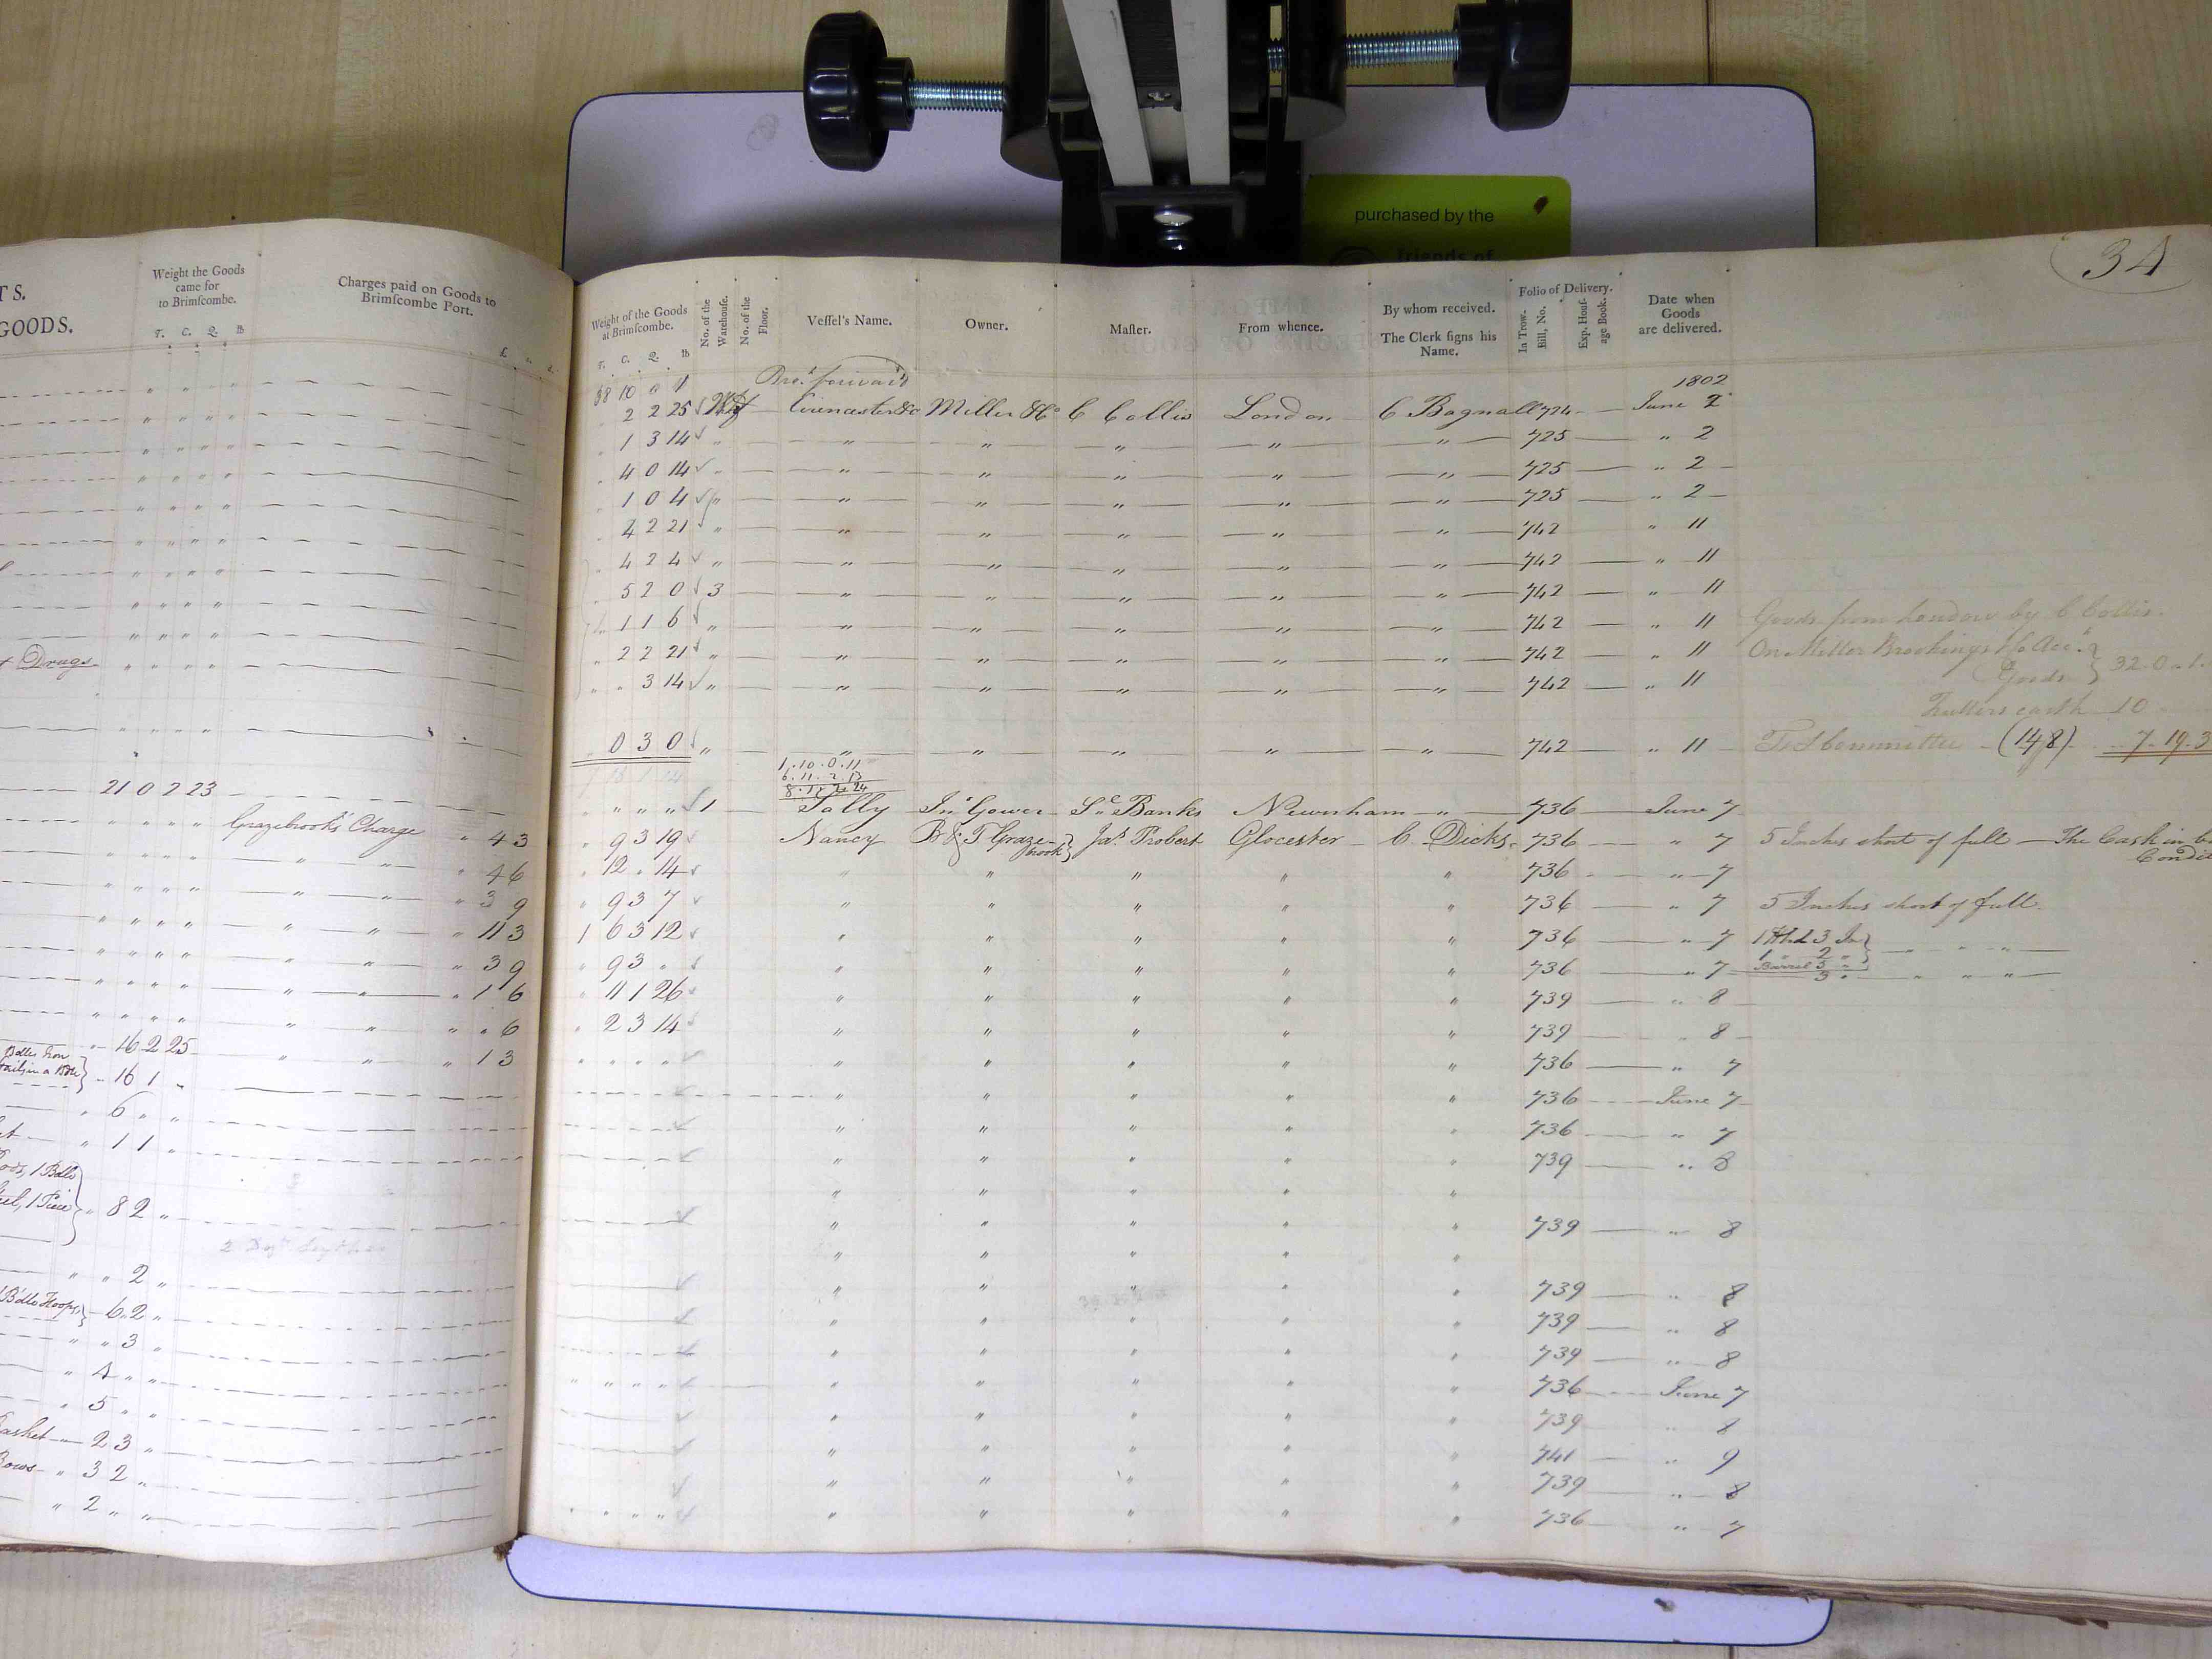 purchased by the
Friends of
34
TS.
GOODS.
Weight the Goods
came for
to Brimscombe.
T. C. Q. lb
Charges paid on Goods to
Brimscombe Port.
£ s. d.
Drags
21 0 2 23
Grazebrook's Charge " 4 3
" 4 6
" 3 9
" 11 3
" 3 9
" 1 6
" " 6
" 16 2 25 " 1 3
" 16 1 "
" 6 " "
" 1 1 "
1 Piece " 8 2 "
" " 2 "
Bdls Hoops " 6 2 "
" " 3 "
" 4 " "
" 5 " "
Casket 2 3 "
" 3 2 "
" 2 " "
Weight of the Goods
at Brimscombe.
T. C. Q. lb
No. of the
Warehouse.
No. of the
Floor.
Vessel's Name.
Owner.
Master.
From whence.
By whom received.
The Clerk signs his
Name.
Folio of Delivery.
In Trow.
Bill, No.
Exp. Hous-
age Book.
Date when
Goods
are delivered.
38 10 0 1 Bro.t forward 1802
2 2 25 Whf Cirencester &c Miller & Co C Collis London C Bagnall 724 June 2
1 3 14 " " " " " " 725 " 2
4 0 14 " " " " " " 725 " 2
1 0 4 " " " " " " 725 " 2
4 2 21 " " " " " " 742 " 11
4 2 4 " " " " " " 742 " 11
5 2 0 3 " " " " " 742 " 11
1 1 6 " " " " " " 742 " 11 Goods from London by C Collis
2 2 21 " " " " " " 742 " 11 On Miller Brookings & Co Acc.t
" 3 14 " " " " " " 742 " 11 Goods } 32.0
Fullers earth 10
0 3 0 " " " " " " 742 " 11 (148) 7.19.3
1.10.0.11
6.11.2.13
8.1
" " " 1 Sally Jn.o Gower Banks Newnham " 736 June 7
" 9 3 19 Nancy B & T Graze-
brook } Ja.s Probert Glocester C. Dicks 736 " 7 5 Inches short of full — The Cask in
" 12 " 14 " " " " " 736 " 7
" 9 3 7 " " " " " 736 " 7 5 Inches short of full
1 6 3 12 " " " " " 736 " 7 1 Hhd 3 In
1 " 2 "
" 9 3 " " " " " " 736 " 7 Barrel 3 "
3 "
" 11 1 26 " " " " " 739 " 8
" 2 3 14 " " " " " 739 " 8
" " " " " " " " " 736 " 7
" " " " " 736 June 7
" " " " " 736 " 7
" " " " " 739 " 8
" " " " "
" " " " " 739 " 8
" " " " "
" " " " " 739 " 8
" " " " " 739 " 8
" " " " " 739 " 8
" " " " " " " " " 736 June 7
" " " " " 739 " 8
" " " " " 741 " 9
" " " " " 739 " 8
" " " " " " " " " 736 " 7